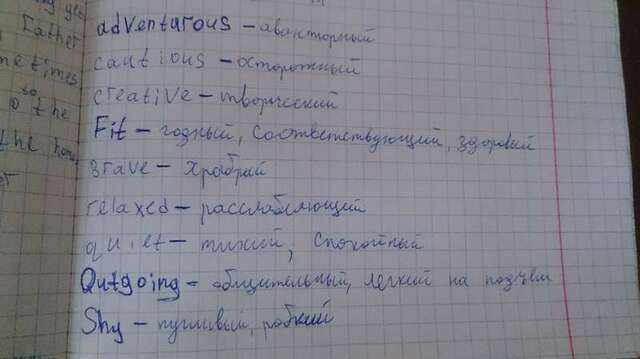 Father
adventurous – авантюрный
netimes
cautious – осторожный
so
creative – творческий
the
Fit – годный, соответствующий, здоровый
the
brave – храбрый
relaxed – расслабляющий
quiet – тихий, спокойный
Outgoing – общительный, легкий на подъём
Shy – пугливый, робкий